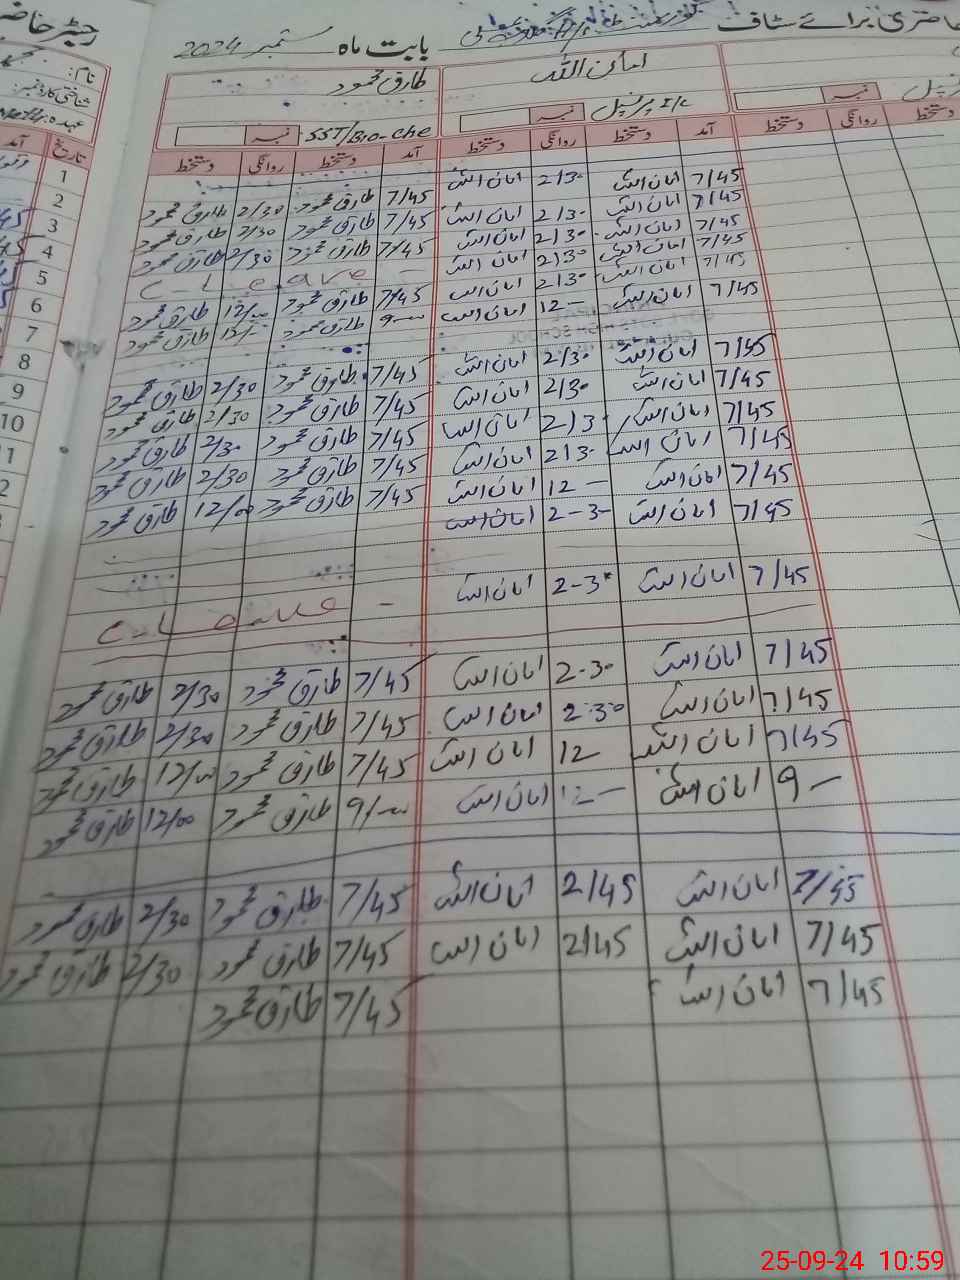 رجسٹر حاضری برائے سٹاف گورنمنٹ بابت ماہ ستمبر 2024
نام:
شناختی کارڈ نمبر:
عہدہ:
امان اللہ طارق محمود
پرنسپل I/C نمبر SST/Bio-che نمبر
تاریخ آمد دستخط روانگی دستخط آمد دستخط روانگی دستخط
1
2 7/45 امان اللہ 2/30 امان اللہ 7/45 طارق محمود 2/30 طارق محمود
3 7/45 امان اللہ 2/30 امان اللہ 7/45 طارق محمود 2/30 طارق محمود
4 7/45 امان اللہ 2/30 امان اللہ 7/45 طارق محمود 2/30 طارق محمود
5 7/45 امان اللہ 2/30 امان اللہ C-Leave -
6 7/45 امان اللہ 2/30 امان اللہ 7/45 طارق محمود 12/00 طارق محمود
7 7/45 امان اللہ 12 - امان اللہ 9-00 طارق محمود 12/- طارق محمود
8
9 7/45 امان اللہ 2/30 امان اللہ 7/45 طارق محمود 2/30 طارق محمود
10 7/45 امان اللہ 2/30 امان اللہ 7/45 طارق محمود 2/30 طارق محمود
7/45 امان اللہ 2/30 امان اللہ 7/45 طارق محمود 2/30 طارق محمود
7/45 امان اللہ 2/30 امان اللہ 7/45 طارق محمود 2/30 طارق محمود
7/45 امان اللہ 12 - امان اللہ 7/45 طارق محمود 12/00 طارق محمود
7/45 امان اللہ 2-30 امان اللہ
7/45 امان اللہ 2-30 امان اللہ
C-Leave -
7/45 امان اللہ 2-30 امان اللہ 7/45 طارق محمود 2/30 طارق محمود
7/45 امان اللہ 2-30 امان اللہ 7/45 طارق محمود 2/30 طارق محمود
7/45 امان اللہ 12 امان اللہ 7/45 طارق محمود 12/00 طارق محمود
9 - امان اللہ 12 - امان اللہ 9/00 طارق محمود 12/00 طارق محمود
7/45 امان اللہ 2/45 امان اللہ 7/45 طارق محمود 2/30 طارق محمود
7/45 امان اللہ 2/45 امان اللہ 7/45 طارق محمود 2/30 طارق محمود
7/45 امان اللہ 7/45 طارق محمود
25-09-24 10:59